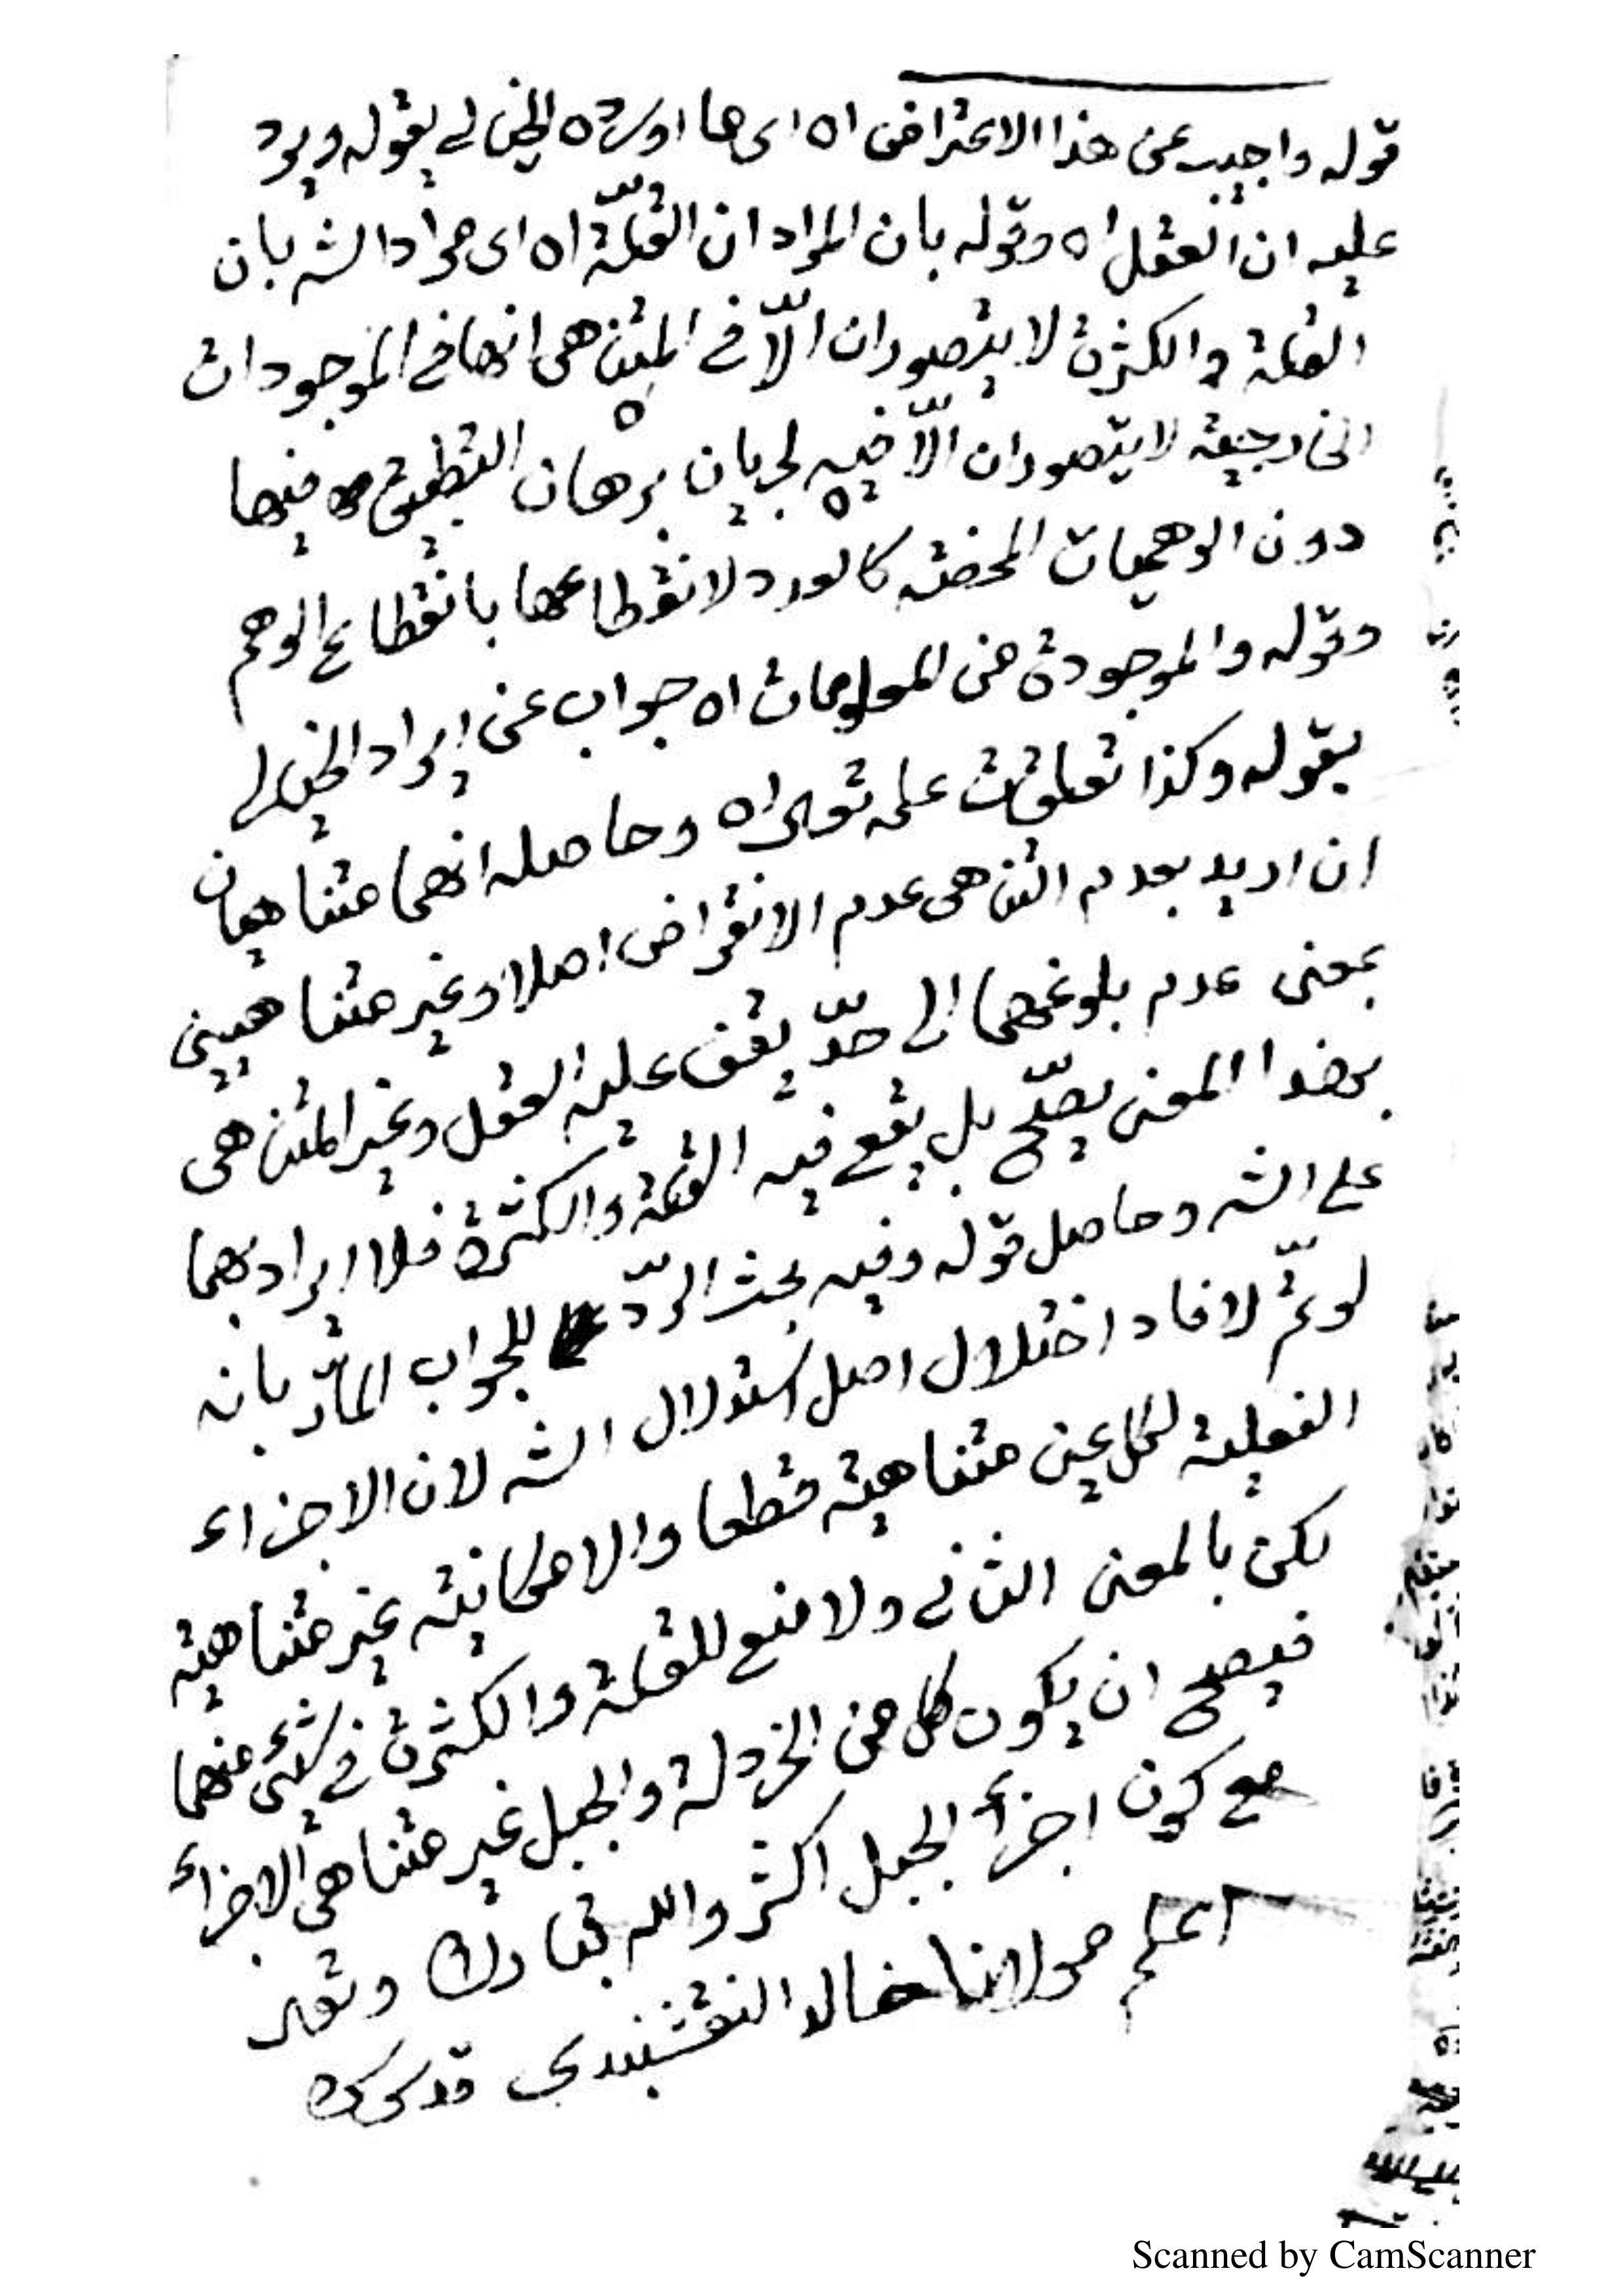 قوله واجيب عن هذا الاعتراض اه اى ما اورده الخيالى بقوله ويرد
عليه ان العقل اه وقوله بان المراد ان القلّة اه اى مراد الشه بان
القلة والكثرة لا يتصوران الّا فى المتناهى انها فى الموجودات
الخارجية لا يتصوران الّا فيه لجريان برهان التطبيق فيها
دون الوهميات المحضة كالعدد لانقطاعها بانقطاع الوهم
وقوله والموجودة من المعلومات اه جواب عن ايراد الخيالى
بقوله وكذا تعلقات علمه تعالى اه وحاصله انهما متناهيان
ان اريد بعدم التناهى عدم الانقراض اصلا وغير متناهيين
بمعنى عدم بلوغهما الى حدّ يقف عليه العقل وغير المتناهى
بهذا المعنى يصحّ بل يقع فيه القلة والكثرة فلا ايراد بهما
على الشه وحاصل قوله وفيه بحث الردّ للجواب المارّ بانه
لو تمّ لافاد اختلال اصل استدلال الشه لان الاجزاء
الفعلية لكل عين متناهية قطعا والامكانية غير متناهية
لكن بالمعنى الثانى ولا منع للقلة والكثرة فى شئ منهما
فيصح ان يكون كل من الخردلة والجبل غير متناهى الاجزاء
مع كون اجزاء الجبل اكثر والله تبارك وتعالى
اعلم مولانا خالد النقشبندى قدس سره
Scanned by CamScanner